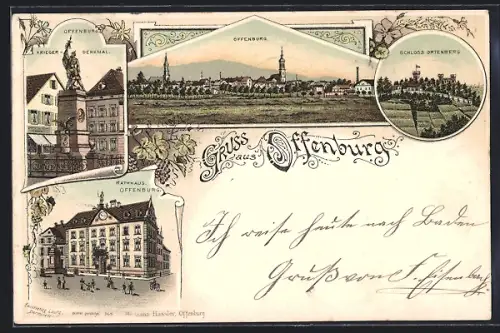 OFFENBURG
KRIEGER-DENKMAL.
OFFENBURG.
SCHLOSS ORTENBERG
Gruss aus Offenburg
RATHHAUS.
OFFENBURG.
Ich reise heute nach Baden
Gruß von
Offenburg